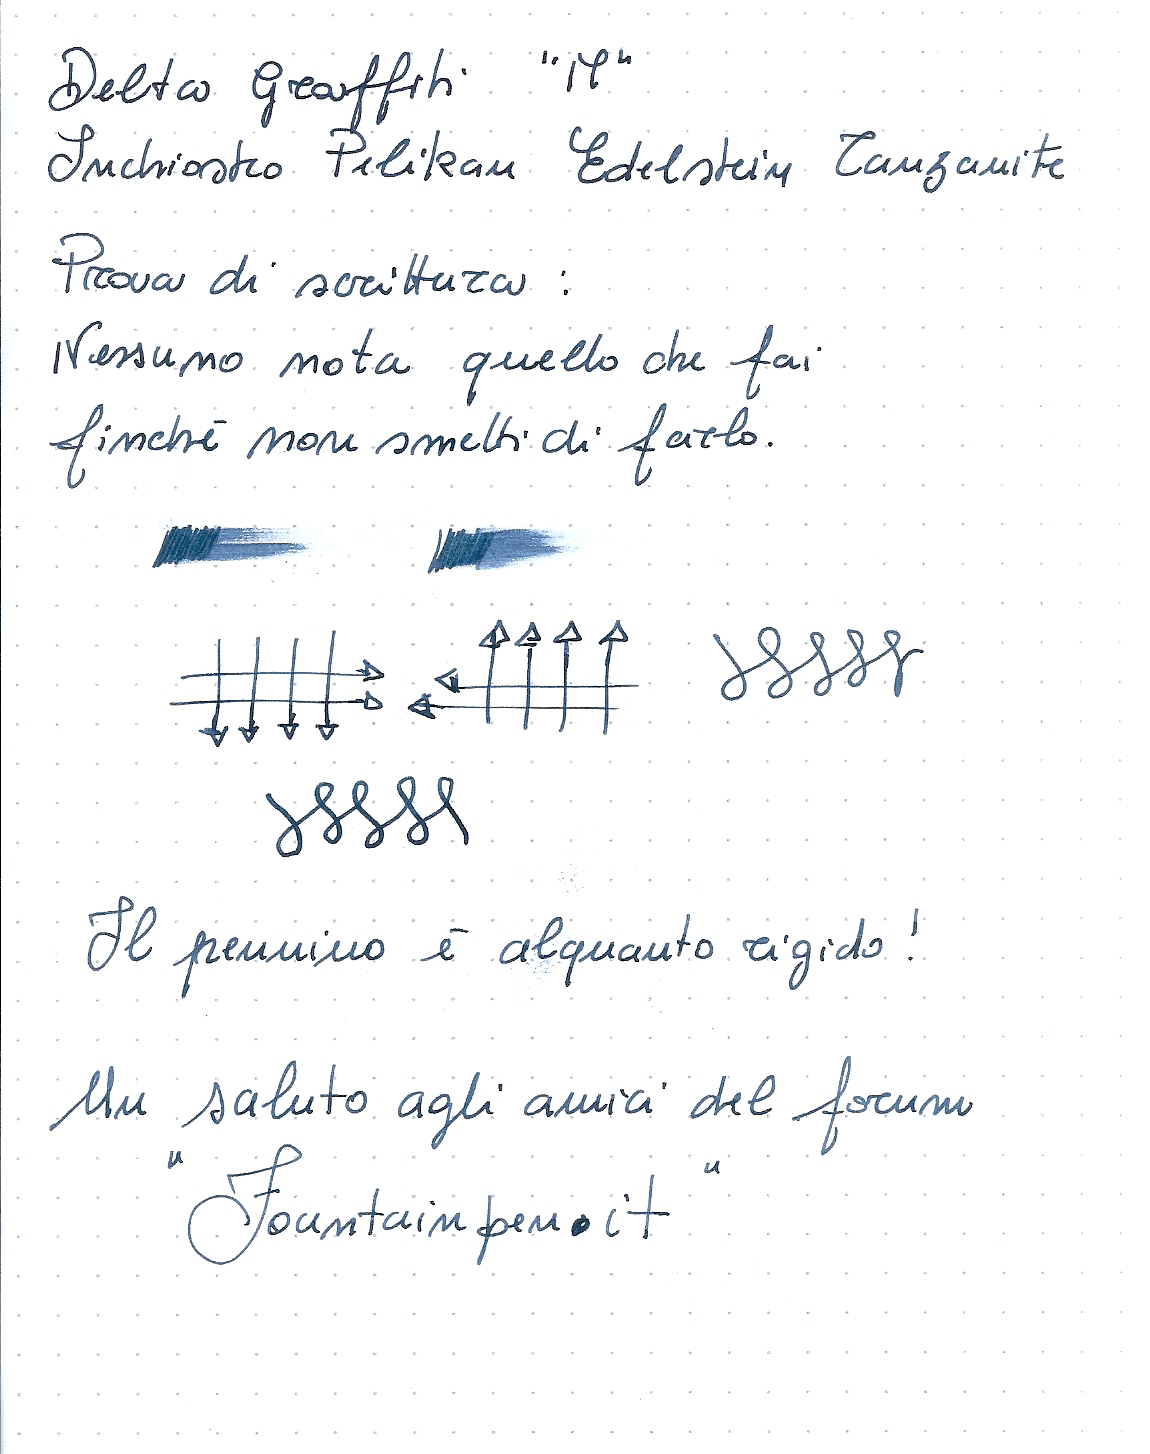 Delta Graffiti "M"
Inchiostro Pelikan Edelstein Tanzanite
Prova di scrittura :
Nessuno nota quello che fai
finchè non smetti di farlo.
Il pennino è alquanto rigido!
Un saluto agli amici del forum
"Fountainpen.it"